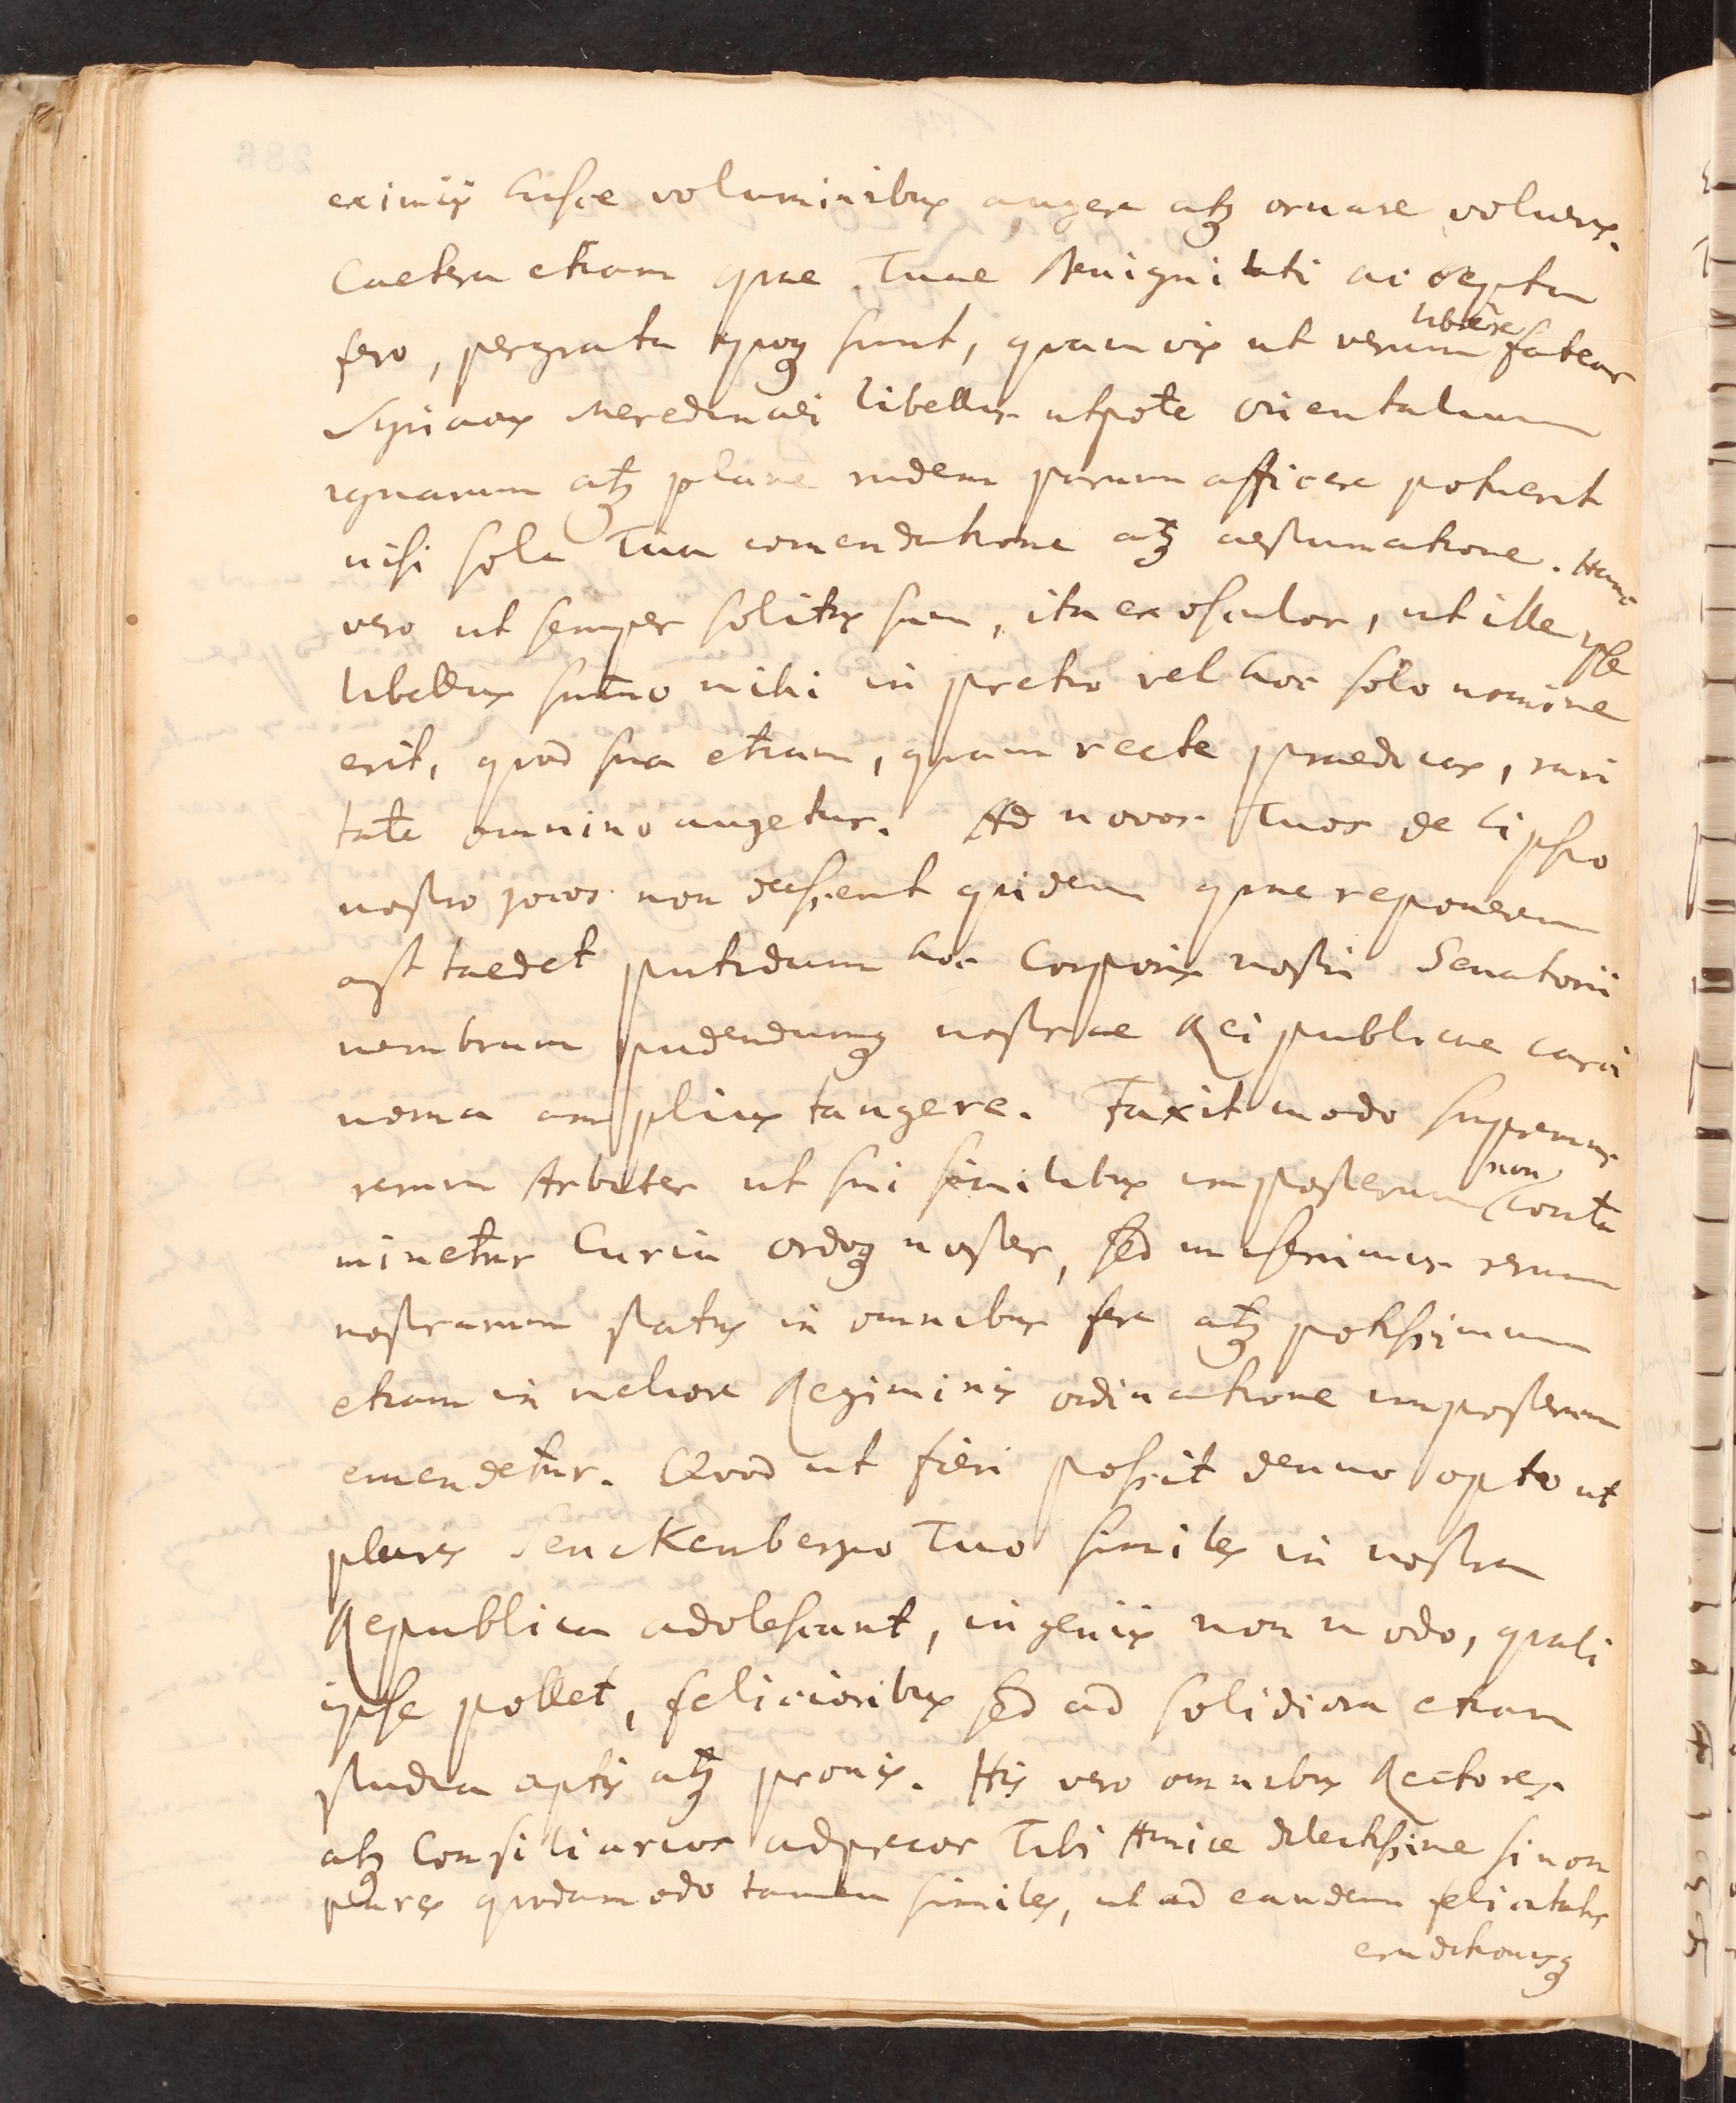 eximiis hisce voluminibus augere atq ornare volueris.
Caetera etiam quae Tuae Benignitati accepta
fero, pergrata quoq sunt, quamvis ut verum libere fateor
Syriacus libellus utpote Orientalium
ignarum atq plane rudem parum afficere potuerit
nisi sola Tua comendatione atq aestumatione. Hanc
vero ut semper solitus sum, ita exosculor, ut ille ipse
libellus sumo mihi in pretio vel hoc solo nomine
erit, quod sua etiam, quam recte praedicas, rari
tate omnino augetur. Ad novos Tuos de Lipsio
nostro jocos non deessent quidem quae reponerem
ast taedet putidum hoc Corporis nostri Senatorii
membrum pudendumq nostrae Reipublicae carci
noma amplius tangere. Faxit modo supremus
rerum Arbiter ut sui similibus imposterum non conta
minetur Curia ordoq noster, sed miserrimus rerum
nostrarum status in omnibus fere atq potissimum
etiam in meliore Regiminis ordinatione imposterum
emendetur. Quod ut fieri possit denuo opto ut
plures Senckenbergio Tuo similes in nostra
Republica adolescant, ingeniis non modo, quali
ipse pollet, felicioribus sed ad solidiora etiam
studia aptis atq pronis. His vero omnibus Rectores
atq Consiliarios adprecor Tibi Amice dilectissime si non
pares quodamodo tamen similes, ut ad eandem felicitatis
eruditionisq
286